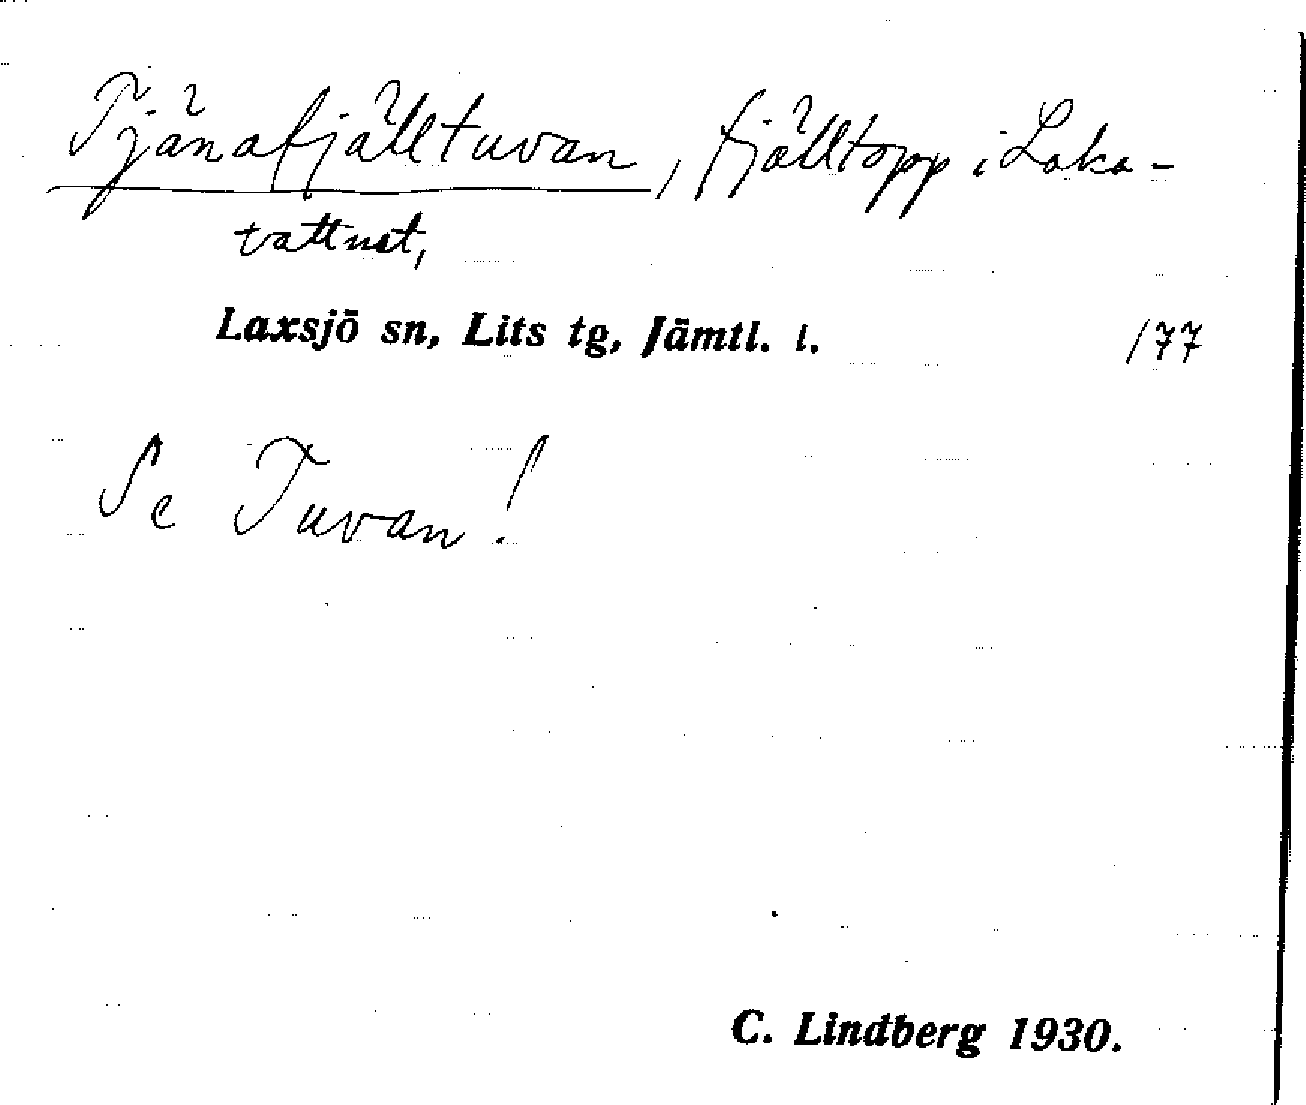 Tjänafjälltuvan, fjälltopp i Laka-
tattnet,
Laxsjö sn, Lits tg, Jämtl. l.
177
Se Tuvan!
C. Lindberg 1930.